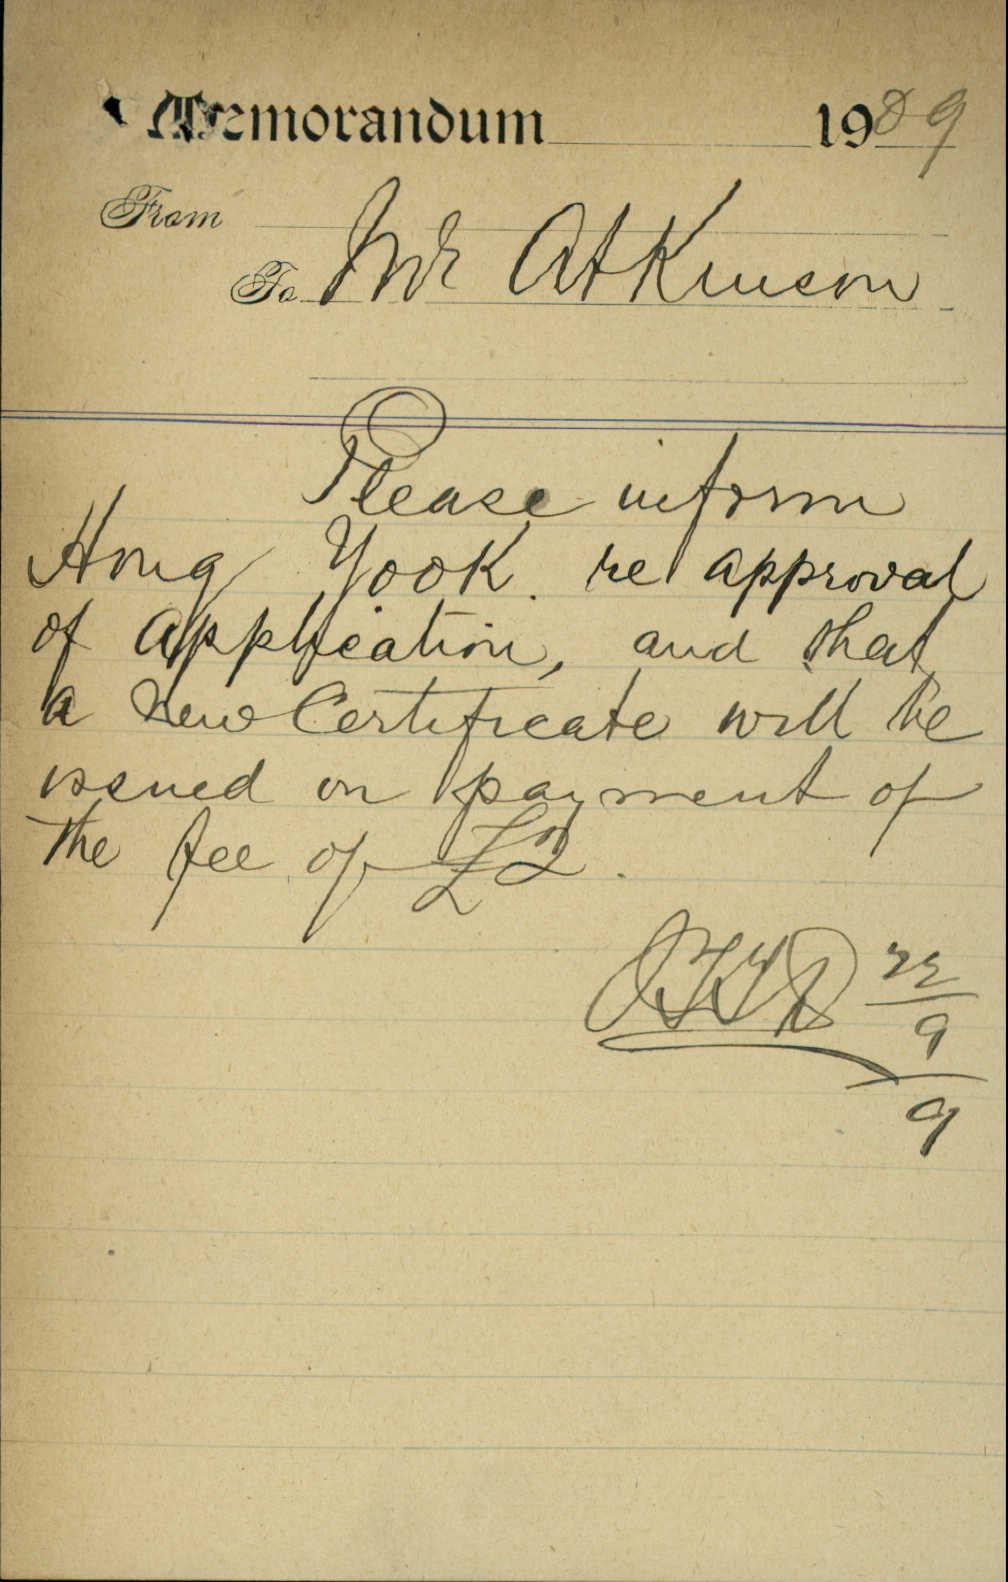 Memorandum 1909
From
To Mr Atkinson
Please inform
Hong Yook. re approval
of Application, and that
a New Certificate will be
issued on payment of
the fee of £2.
22
9
9